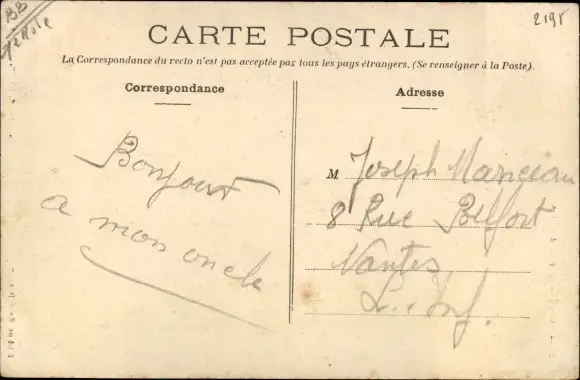 BB
2195
CARTE POSTALE
La Correspondance du recto n'est pas acceptée par tous les pays étrangers. (Se renseigner à la Poste).
Correspondance
Bonjour
a mon oncle
Adresse
M Joseph
8 Rue Belfort
Nantes
L. Inf.